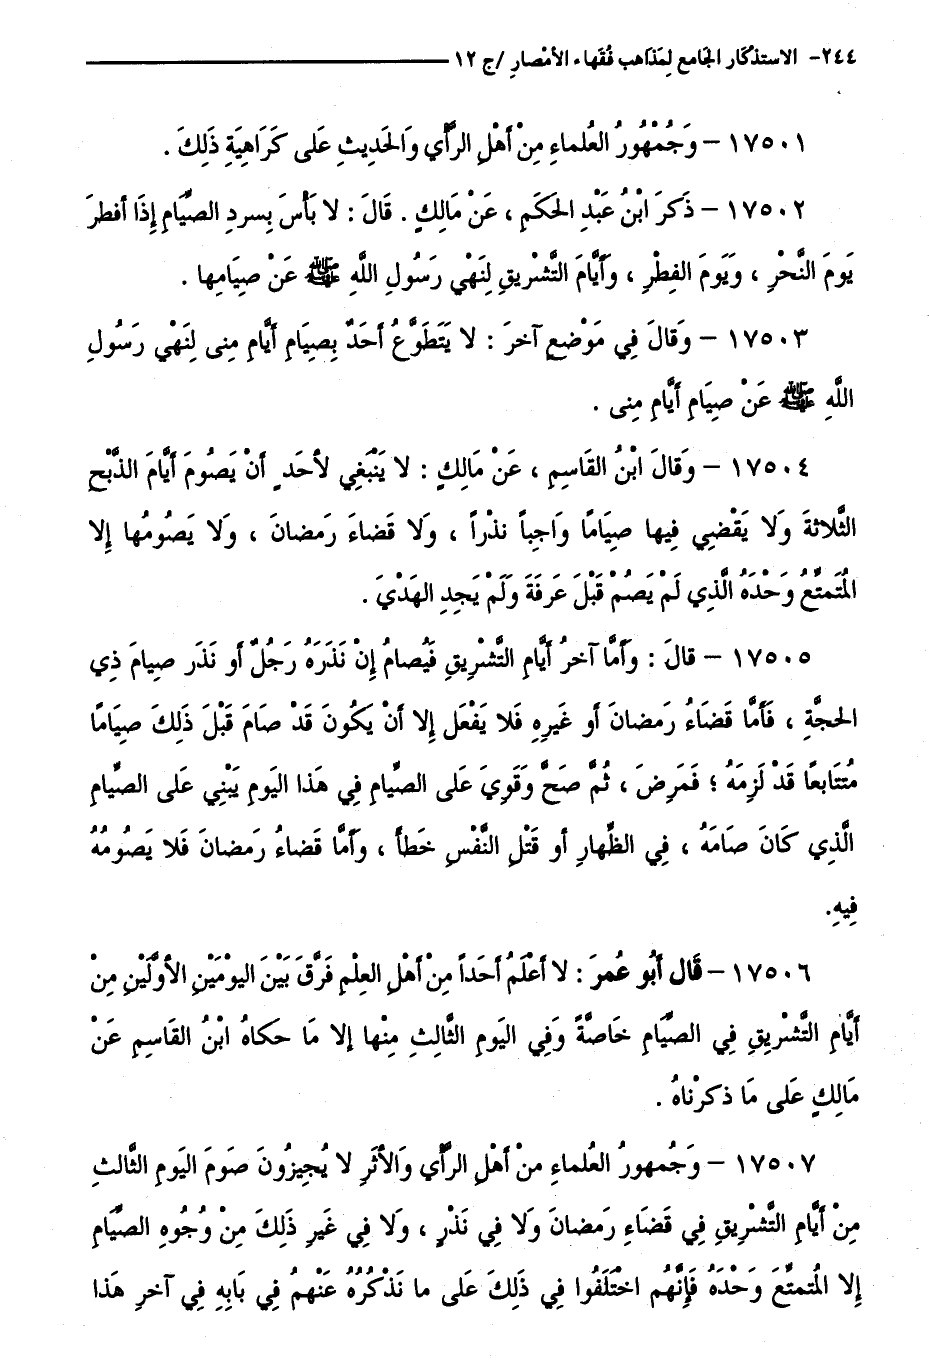 ٢٤٤- الاستذكار الجامع لِمَذاهب فُقَهاء الأمْصارِ /ج ١٢
١٧٥٠١ – وَجُمْهُورُ العُلماءِ مِنْ أَهْلِ الرَّأْي وَالحَدِيثِ عَلى كَرَاهِيَةِ ذَلِكَ .
١٧٥٠٢ – ذَكرَ ابْنُ عَبْدِ الحَكَمِ ، عَنْ مَالِكٍ . قَالَ : لا بَأْسَ بِسردِ الصِّيَامِ إِذَا أفطرَ
يَومَ النَّحْرِ ، وَيَومَ الفِطْرِ ، وَأَيَّامَ التَّشْرِيقِ لِنَهْي رَسُولِ اللَّهِ ﷺ عَنْ صِيَامِها .
١٧٥٠٣ – وَقالَ فِي مَوْضعٍ آخرَ : لا يَتَطَوَّعُ أحَدٌ بِصِيَامِ أَيَّامِ مِنى لِنَهْي رَسُولِ
اللَّهِ ﷺ عَنْ صِيَامِ أَيَّامِ مِنى .
١٧٥٠٤ – وَقالَ ابْنُ القَاسِمِ ، عَنْ مَالِكٍ : لا يَنْبَغِي لأحَدٍ أنْ يَصُومَ أَيَّامَ الذَّبْحِ
الثَّلاثةَ وَلا يَقْضِي فِيها صِيَامًا وَاجِباً نذْراً ، وَلا قَضاءَ رَمضانَ ، وَلا يَصُومُها إِلا
المُتَمتِّعُ وَحْدَهُ الَّذِي لَمْ يَصُمْ قَبْلَ عَرَفَةَ وَلَمْ يَجِدِ الهَدْيَ .
١٧٥٠٥ – قالَ : وَأَمَّا آخرُ أَيَّامِ التَّشْرِيقِ فَيُصامُ إِنْ نَذَرَهُ رَجُلٌ أو نَذَر صِيامَ ذِي
الحجَّةِ ، فَأَمَّا قَضَاءُ رَمضانَ أو غَيرِهِ فَلا يَفْعَل إِلا أنْ يَكُونَ قَدْ صَامَ قَبْلَ ذَلِكَ صِيَامًا
مُتتَابعًا قَدْ لَزِمَهُ ؛ فَمَرِضَ ، ثُمَّ صَحَّ وَقَوِيَ عَلى الصِّيامِ فِي هَذا اليَومِ يَبْنِي عَلى الصِّيامِ
الَّذِي كَانَ صَامَهُ ، فِي الظِّهارِ أو قَتْلِ النَّفْسِ خَطأً ، وَأَمَّا قَضاءُ رَمضانَ فَلا يَصُومُهُ
فِيهِ.
١٧٥٠٦ – قَال أَبُو عُمرَ : لا أَعْلَمُ أحَداً مِنْ أَهْلِ العِلْمِ فَرَّقَ بَيْنَ اليَوْمَيْنِ الأوَّلَيْنِ مِنْ
أَيَّامِ التَّشْرِيقِ فِي الصِّيَامِ خَاصَّةً وَفِي اليَومِ الثَّالِثِ مِنْها إِلا مَا حَكاهُ ابْنُ القَاسِمِ عَنْ
مَالِكٍ عَلى مَا ذكرْناهُ .
١٧٥٠٧ – وَجُمهورُ العُلماءِ مِنْ أَهْلِ الرَّأْي وَالأثَرِ لا يُجِيزُونَ صَومَ اليَومِ الثَّالث
مِنْ أَيَّامِ التَّشْرِيقِ فِي قَضَاءِ رَمضانَ وَلا فِي نَذْرٍ ، وَلا فِي غَيرِ ذَلِكَ مِنْ وُجُوهِ الصِّيَامِ
إِلا المُتمتِّعَ وَحْدَهُ فَإِنَّهُم اخْتَلَفُوا فِي ذَلِكَ عَلى ما نَذْكُرُهُ عَنْهمُ فِي بَابِهِ فِي آخرِ هَذا